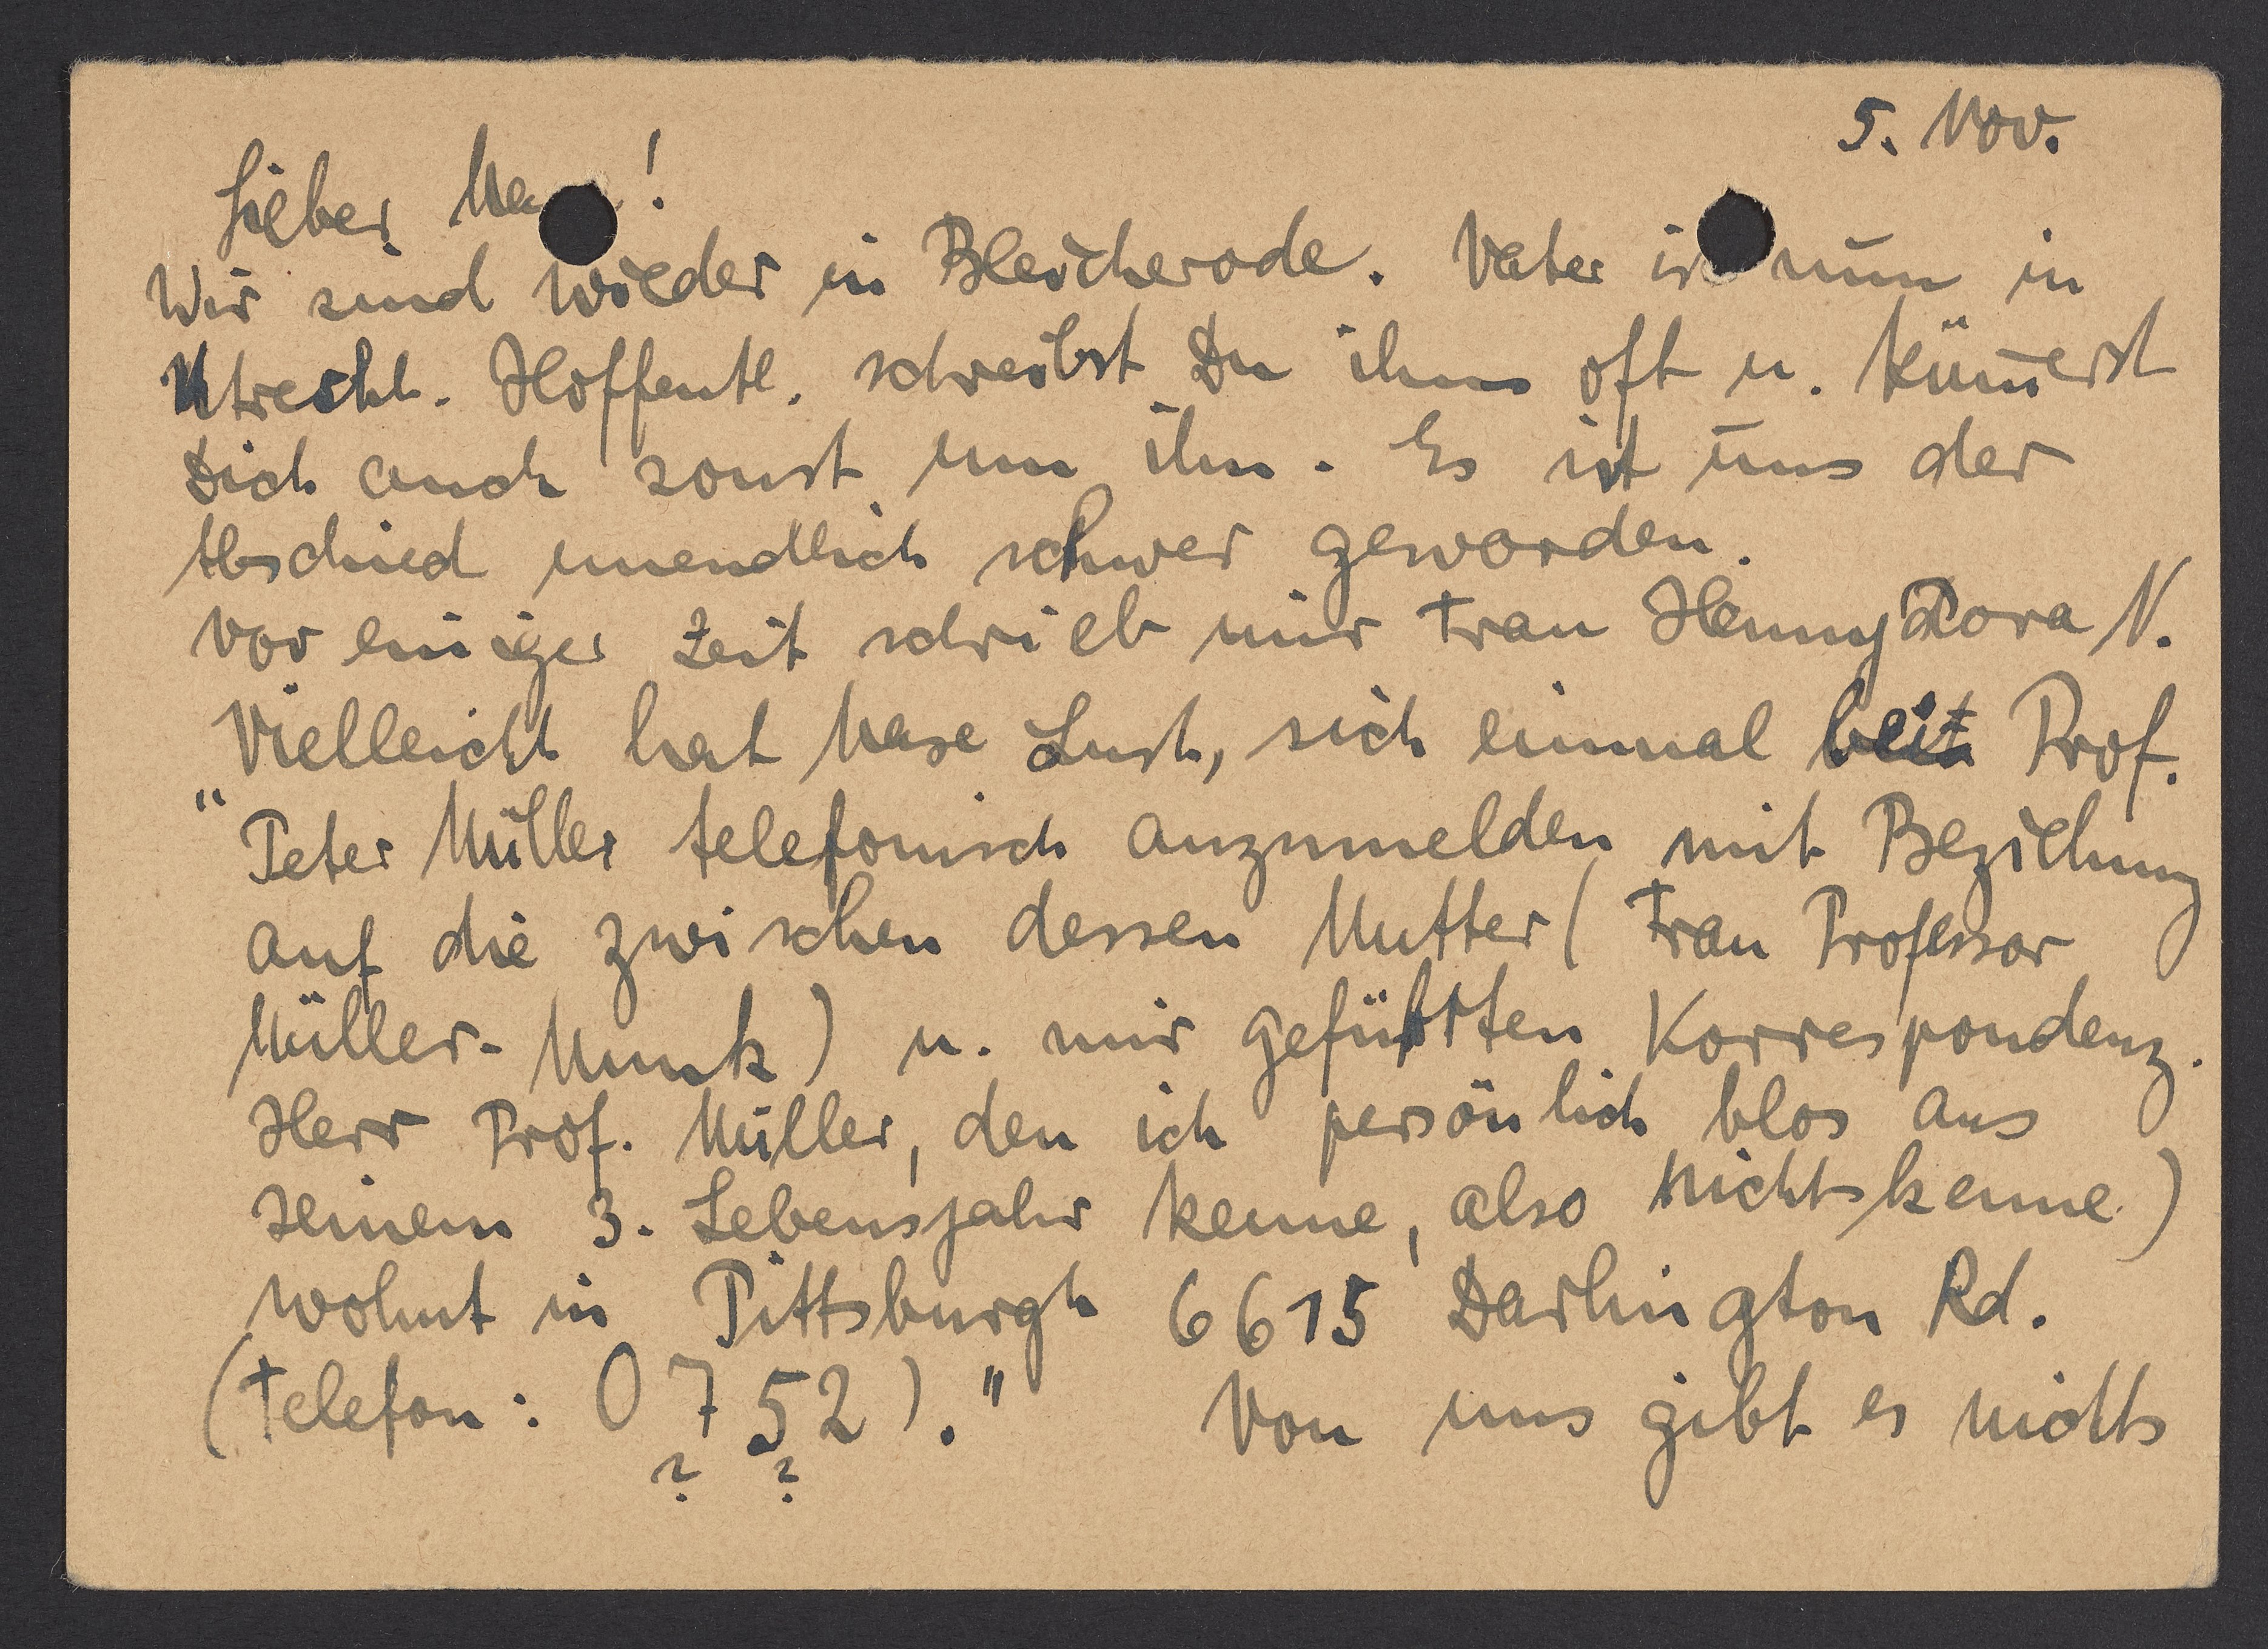 5. Nov.
Lieber !
Wir sind wieder in Bleicherode. Vater ist nun in
Utrecht. Hoffentl. schreibst Du ihm oft u. küm̄erst
Dich auch sonst um ihn. Es ist uns der
Abschied unendlich schwer geworden.
Vor einiger Zeit schrieb mir Frau Henny Dora N.
Vielleicht hat Mase Lust, sich einmal bei Prof.
"Peter Müller telefonisch anzumelden mit Beziehung
auf die zwischen dessen Mutter (Frau Professor
Müller-Munk) u. mir geführten Korrespondenz.
Herr Prof. Müller, den ich persönlich blos aus
seinem 3. Lebensjahr kenne, also nicht kenne)
wohnt in Pittsburgh 6615 Darlington Rd.
(Telefon: 0752)." Von uns gibt es nichts
? ?